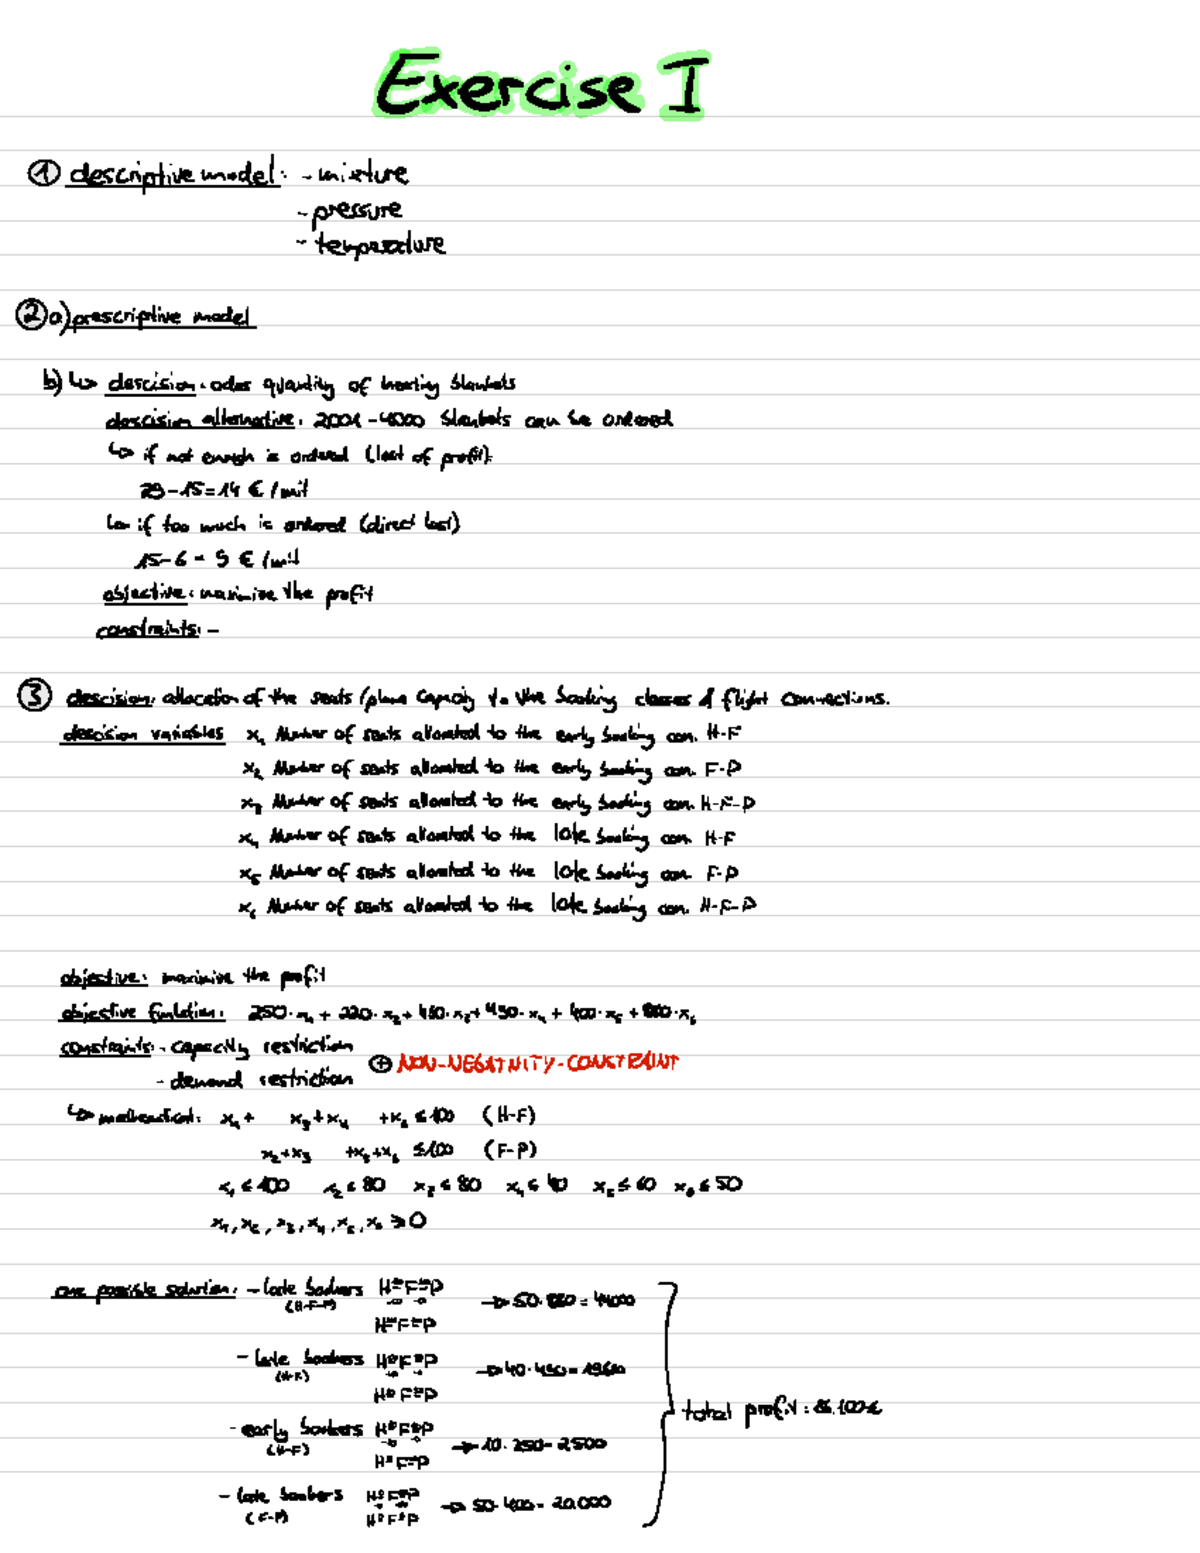 Exercise I
① descriptive model: - mixture
- pressure
- temperature
② a) prescriptive model
b) ↳ descision: oder quantity of heating blankets
descision alternative: 2001 - 4000 blankets can be ordered
↳ if not enough is ordered (lost of profit):
29 - 15 = 14 € / unit
↳ if too much is ordered (direct lost)
15 - 6 = 9 € / unit
objective: maximize the profit
constraints: -
③ descision: allocation of the seats / plane capacity to the booking classes & flight connections.
descision variables x₁ Number of seats allocated to the early booking con. H-F
x₂ Number of seats allocated to the early booking con. F-P
x₃ Number of seats allocated to the early booking con. H-F-P
x₄ Number of seats allocated to the late booking con. H-F
x₅ Number of seats allocated to the late booking con. F-P
x₆ Number of seats allocated to the late booking con. H-F-P
objective: maximize the profit
objective funktion: 250·x₁ + 220·x₂ + ·x₃ + ·x₄ + 400·x₅ + 880·x₆
constraints: - capacity restriction
⊕ NON-NEGATIVITY-CONSTRAINT
- demand restriction
↳ mathematical: x₁ + x₃ + x₄ + x₆ ≤ 100 (H-F)
x₂ + x₃ + x₅ + x₆ ≤ 100 (F-P)
x₁ ≤ 100 x₂ ≤ 80 x₃ ≤ 80 x₄ ≤ 40 x₅ ≤ 60 x₆ ≤ 50
x₁, x₂, x₃, x₄, x₅, x₆ ≥ 0
one possible solution: - late bookers → 50·880 = 44000
(H-F-P)
- late bookers → 40·490 = 19600
(H-F)
total profit: 86.100€
- early bookers → 10·250 = 2500
(H-F)
- late bookers → 50·400 = 20.000
(F-P)